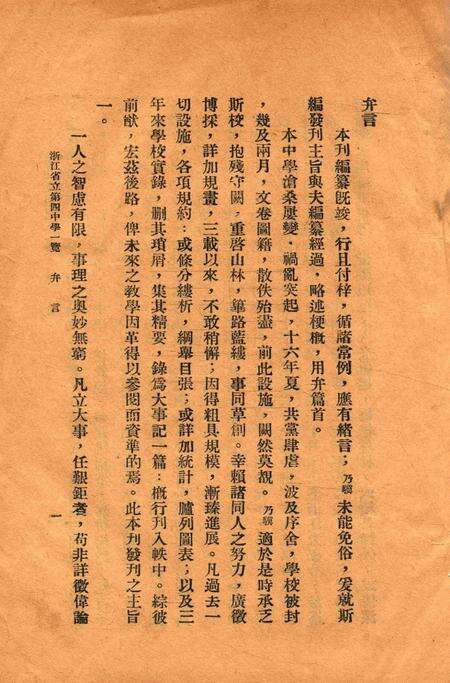 弁言
本刊編纂既竣，行且付梓，循諸常例，應有緒言；乃驥未能免俗，爰就斯
編發刊主旨與夫編纂經過，略述梗概，用弁篇首。
本中學滄桑屢變，禍亂突起，十六年夏，共黨肆虐，波及序舍，學校被封
，幾及兩月，文卷圖籍，散佚殆盡，前此設施，闃然莫覩。乃驥適於是時承乏
斯校，抱殘守闕，重啓山林，篳路藍縷，事同草創。幸賴諸同人之努力，廣徵
博採，詳加規畫，三載以來，不敢稍懈；因得粗具規模，漸臻進展。凡過去一
切設施，各項規約：或條分縷析，綱舉目張；或詳加統計，臚列圖表；以及三
年來學校實錄，刪其瑣屑，集其精要，錄爲大事記一篇：概行刊入帙中。綜彼
前猷，宏茲後路，俾未來之教學因革得以參閱而資準的焉。此本刊發刊之主旨
一。
一人之智慮有限，事理之奧妙無窮。凡立大事，任艱鉅者，苟非詳徵偉論
浙江省立第四中學一覽　弁言　一